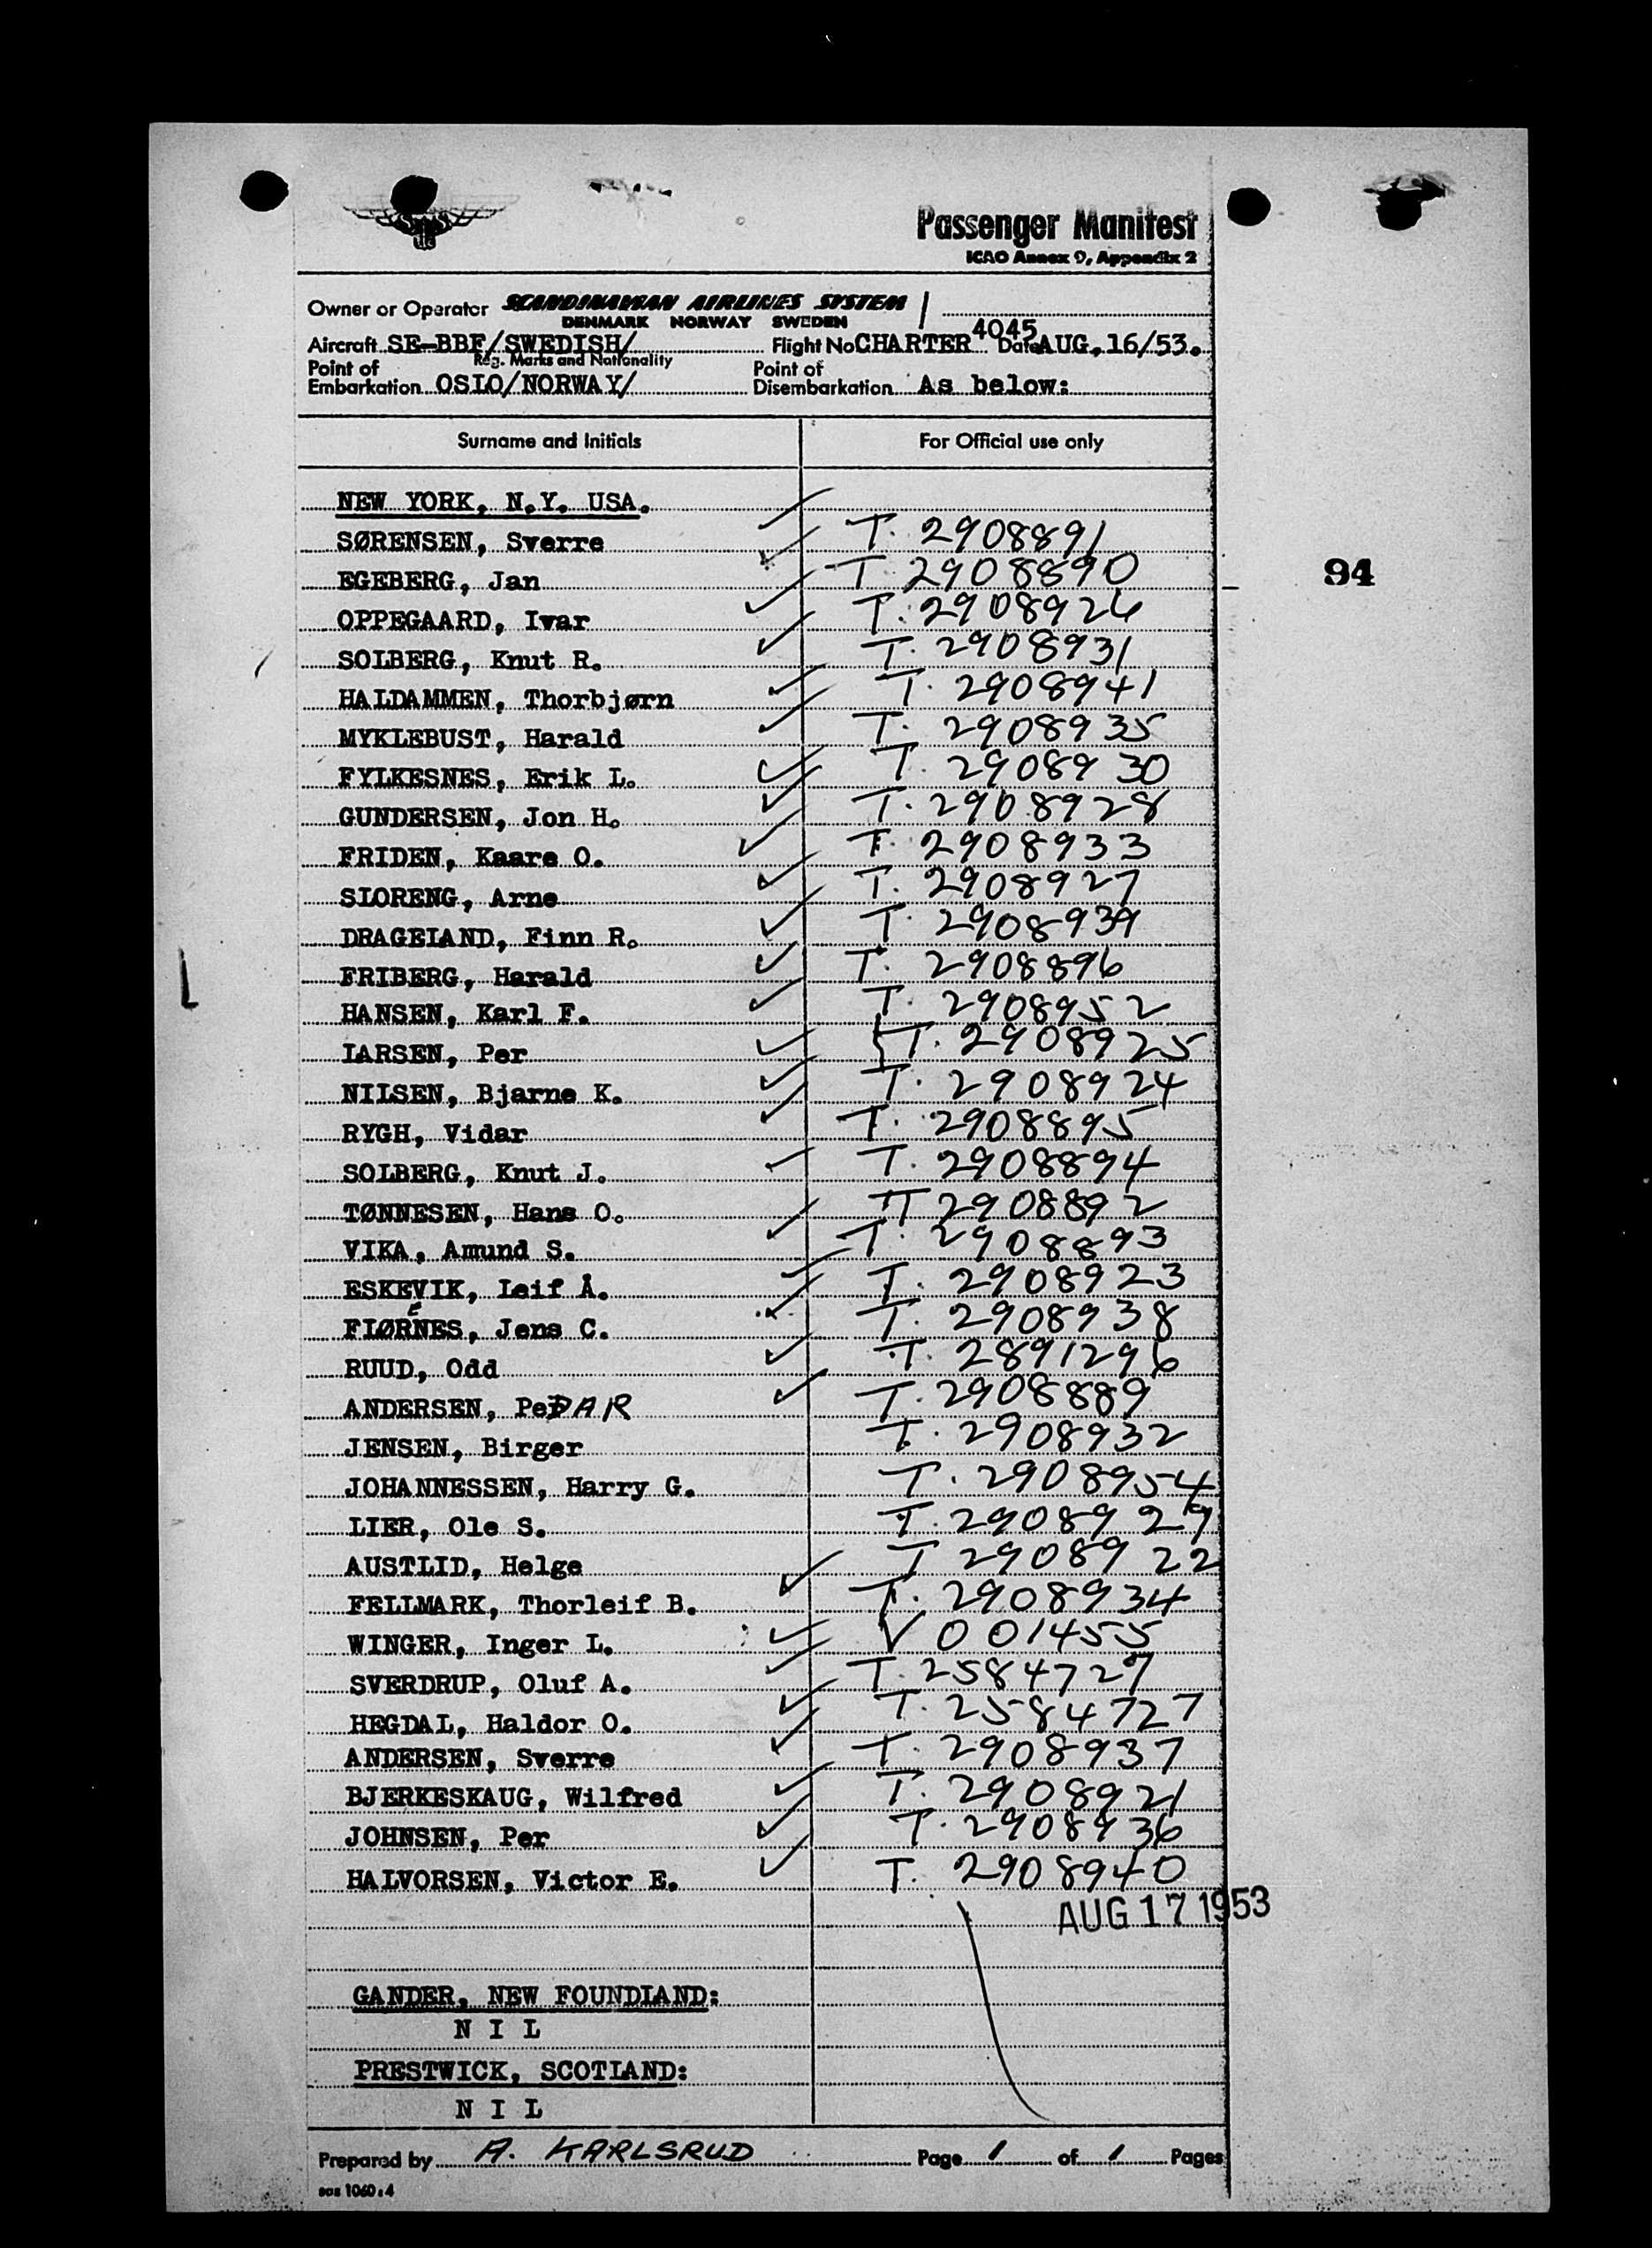 Passenger Manifest
ICAO Annex 9, Appendix 2
Owner or Operator SCANDINAVIAN AIRLINES SYSTEM
DENMARK NORWAY SWEDEN
Aircraft SE-BBF/SWEDISH/ Flight No CHARTER 4045 Date AUG. 16/53.
Reg. Marks and Nationality
Point of Embarkation OSLO/NORWAY/ Point of Disembarkation As below:
Surname and Initials For Official use only
NEW YORK, N.Y. USA.
SØRENSEN, Sverre T. 2908891
EGEBERG, Jan T 2908890
94
OPPEGAARD, Ivar T. 2908926
SOLBERG, Knut R. T. 2908931
HALDAMMEN, Thorbjørn T. 2908941
MYKLEBUST, Harald T. 2908935
FYLKESNES, Erik L. T. 2908930
GUNDERSEN, Jon H. T. 2908928
FRIDEN, Kaare O. T. 2908933
SLORENG, Arne T. 2908927
DRAGELAND, Finn R. T. 2908939
FRIBERG, Harald T. 2908896
HANSEN, Karl F. T. 2908952
LARSEN, Per T. 2908925
NILSEN, Bjarne K. T. 2908924
RYGH, Vidar T. 2908895
SOLBERG, Knut J. T. 2908894
TØNNESEN, Hans O. T 2908892
VIKA, Amund S. T. 2908893
ESKEVIK, Leif Å. T. 2908923
FLØRENES, Jens C. T. 2908938
RUUD, Odd T. 2891296
ANDERSEN, PeDAR T. 2908889
JENSEN, Birger T. 2908932
JOHANNESSEN, Harry G. T. 2908954
LIER, Ole S. T. 2908929
AUSTLID, Helge T 2908922
FELLMARK, Thorleif B. T. 2908934
WINGER, Inger L. V 001455
SVERDRUP, Oluf A. T. 2584729
HEGDAL, Haldor O. T. 2584727
ANDERSEN, Sverre T. 2908937
BJERKESKAUG, Wilfred T. 2908921
JOHNSEN, Per T. 2908936
HALVORSEN, Victor E. T. 2908940
AUG 17 1953
GANDER, NEW FOUNDLAND:
N I L
PRESTWICK, SCOTLAND:
N I L
Prepared by A. KARLSRUD Page 1 of 1 Pages
sas 1060:4